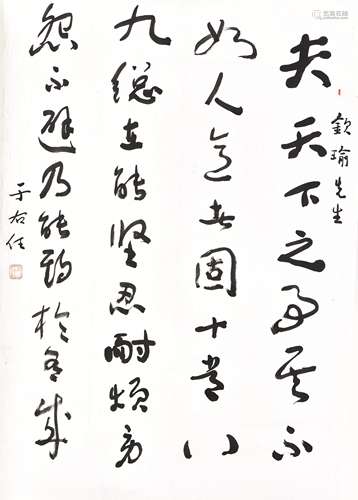 欽瑜先生
夫天下之事其不
如人意者固十常八
九總在能堅忍耐煩勞
怨不避乃能期於有成
于右任